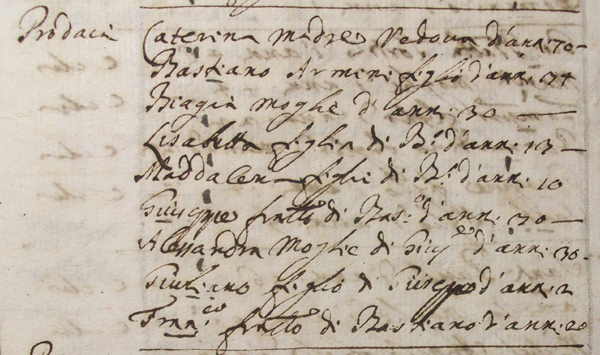 Prodacia Caterina madre Vedova d'ann: 70
Bastiano Armeni figlio d'ann: 34
Biagia moglie d'ann: 30
Lisabetta figlia di B.º d'ann: 13
Maddalena figlia di B.º d'ann: 10
Giuseppe fratto di Bas:º d'ann: 30
Alessandra Moglie di Giu:pe d'ann: 30
Giuliano figlio di Giuseppe d'ann: 2
Fran:co fratto di Bastiano d'ann: 20